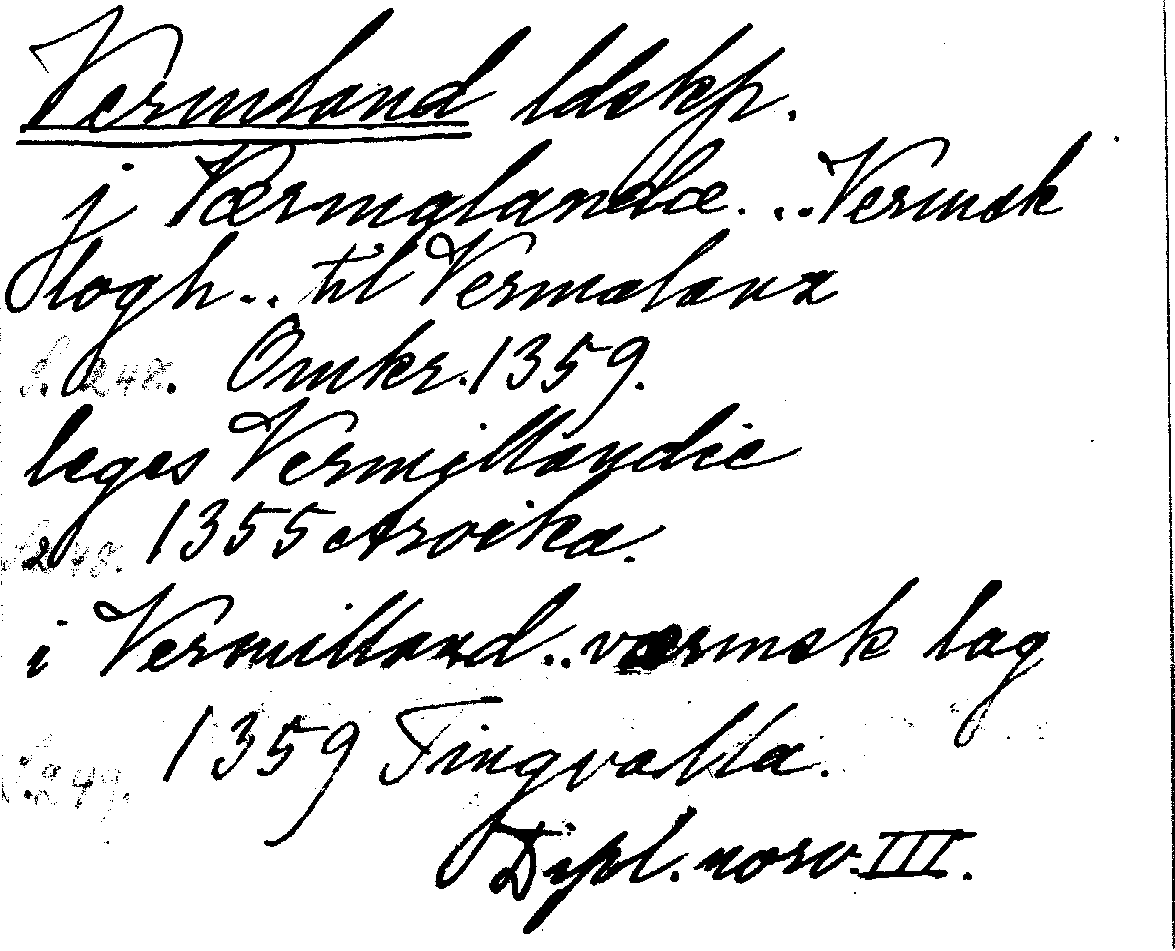 Vermland ldskp.
j Værmalandæ... Vermsk
logh... til Vermalanz
S. 248. Omkr. 1359.
leges Vermillandie
S. 248. 1355 Arvika.
i Vermilland.. værmsk lag
S. 249. 1359 Tingvalla.
Dipl. norv. III.